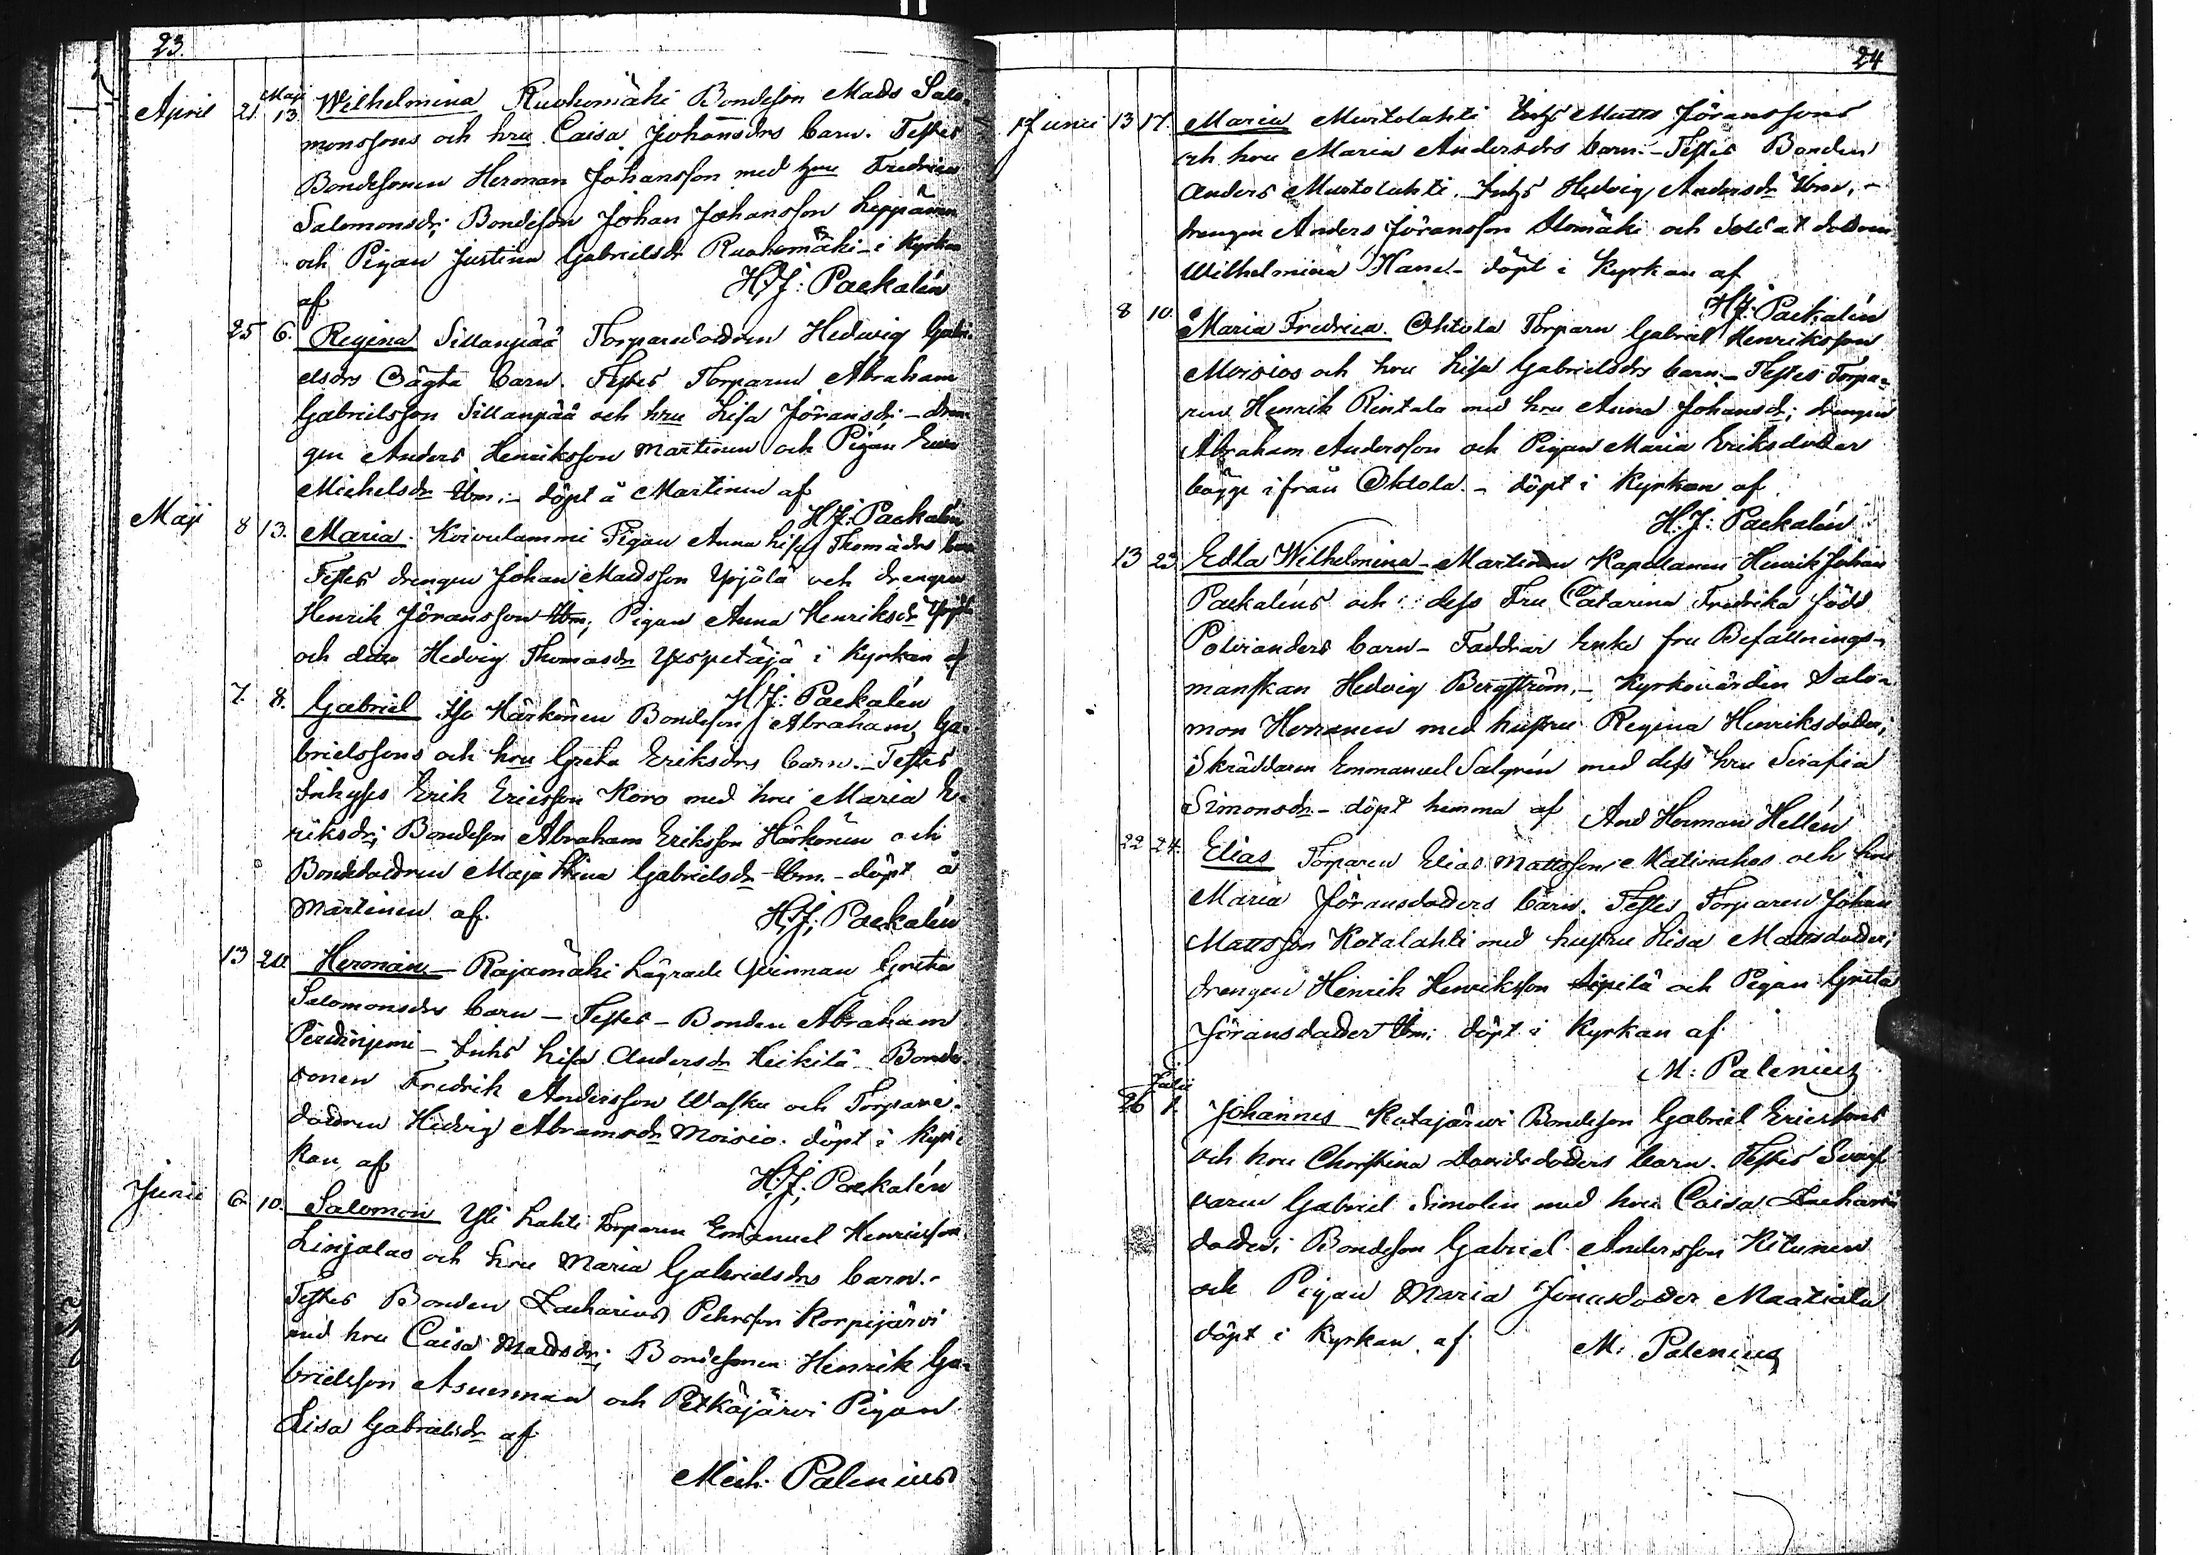 23.
April 21 Maji 13. Wilhelmina Ruokomäki Bondeson Mads Salo-
monssons och hru Caisa Johansdrs barn. Testes
Bondesonen Herman Johansson med hru Fredrica
Salomonsdr; Bondeson Johan Johansson Leppänen
och Pigan Justina Gabrielsdr Ruokomäki i Kyrkan
af H.J: Paekalén
25 6. Regina Sillanpää Torparedottren Hedwig Gabri-
elsdrs Oägta barn. Testes Torparen Abraham
Gabrielsson Sillanpää och hru Lisa Jöransdr; - dren-
gen Anders Henriksson Martinen och Pigan Eva
Michelsdr Ibm; - döpt å Martinen af
H.J: Paekalén
Maji 8 13. Maria. Koivulammi Pigan Anna Lisa Thomædrs barn
Testes drengen Johan Madsson Yrjölä och drengen
Henrik Jöransson Ibm; Pigan Anna Henriksdr Yrjölä
och dito Hedvig Thomasdr i Kyrkan af
H.J: Paekalén
7. 8. Gabriel Iso Härkönen Bondeson Abraham Ga-
brielssons och hru Greta Eriksdrs barn. - Testes
Inhyses Erik Ericsson Koro med hru Maria E-
riksdr; Bondeson Abraham Eriksson Härkönen och
Bondedottren Maja Stina Gabrielsdr Ibm. - döpt å
Martinen af. H.J; Paekalén
13 20. Herman - Rajamäki Lägrade Qvinnan Greta
Salomonsdrs barn - Testes - Bonden Abraham
- Inhs Lisa Andersdr Heikilä - Bonde-
sonen Fredrik Andersson Wasku och Torpare-
dottren Hedvig Abramsdr Moisio. döpt i Kyr-
kan, af H.J; Paekalén
Junii 6. 10. Salomon Yli Lahti Torparen Emanuel Henricsson
Linjalas och hru Maria Gabrielsdrs barn. -
Testes Bonden Zacharias Pehrsson Korpijärvi
med hru Caisa Madsdr; Bondesonen Henrik Ga-
brielsson Asunmaa och Petkäjärvi Pigan
Lisa Gabrielsdr af
Mich. Palenius
24
Junii 13 17. Maria Murtolahti Inhs Matts Jöranssons
och hru Maria Andersdrs barn. - Testes Bonden
Anders Murtolahti. Inhs Hedvig Andersdr Ibm, -
drengen Anders Jöransson Alomäki och Soldat dottren
Wilhelmina Hane - döpt i Kyrkan af
H.J: Paekalén
8 10. Maria Fredrica. Ohtola Torparn Gabriel Henriksson
Moisios och hru Lisa Gabrielsdrs barn. - Testes Torpa-
ren Henrik Rintala med hru Anna Johansdr; drengen
Abraham Andersson och Pigan Maria Eriksdotter
bägge ifrån Ohtola. - döpt i Kyrkan af
H.J: Paekalén
13 23. Edla Wilhelmina - Martinen Kapellanen Henrik Johan
Paekaléns och dess Fru Catarina Fredrika född
Polvianders barn - Faddrar Enke fru Befallnings-
manskan Hedvig Bergström, - Kyrkovärden Salo-
mon Herranen med hustru Regina Henriksdotter;
Skräddaren Emmanuel Salgrén med dess hru Serafia
Simonsdr - döpt hemma af And Herman Hellén
22 24. Elias Torparen Elias Mattsson Matinahos och hru
Maria Jöransdotters barn. Testes Torparen Johan
Mattsson Kotalahti med hustru Lisa Mattsdotter;
drengen Henrik Henriksson Sipilä och Pigan Greta
Jöransdotter Ibm; döpt i Kyrkan af
M: Palenius
26 Julii 1. Johannes - Katajärwi Bondeson Gabriel Ericssons
och hru Christina Davidsdotters barn. Testes Svarf-
varen Gabriel Simolin med hru Caisa Zacharie
dotter; Bondeson Gabriel Andersson Kitunen
och Pigan Maria Jonasdotter Maatiala
döpt i Kyrkan. af M: Palenius